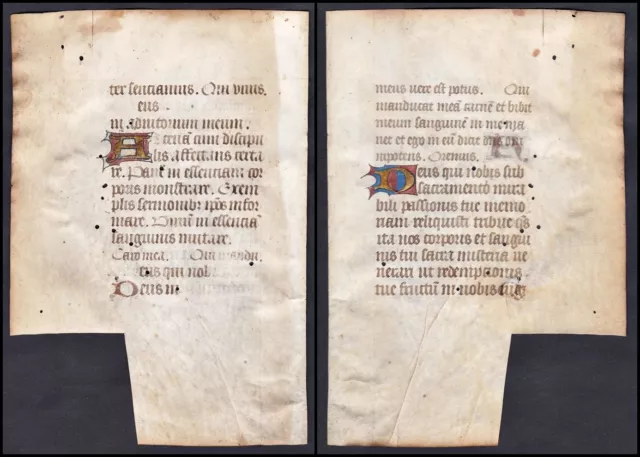 ter sentiamus. Qui vivis.
eus
in adiutorium meum.
As cena cum discipu
lis affectans certa
re. Panē in essentiam cor
poris monstrare. Exem
plis sermonibꝫ ipos infor
mare. Vinum in essentia
sanguinis mutare.
Caro mea. Qui mandu.
eus qui nob
Deus in
meus vere est potus. Qui
manducat meā carnē et bibit
meum sanguinē in me ma
net et ego in eū
nipotens. Oremus.
Deus qui nobis sub
sacramento mira
bili passionis tue memo
riam reliquisti tribue qs
ita nos corporis et sangui
nis tui sacra misteria ve
nerari ut redemptionis
tue fructū in nobis iug